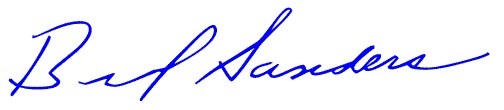 Brad Sanders